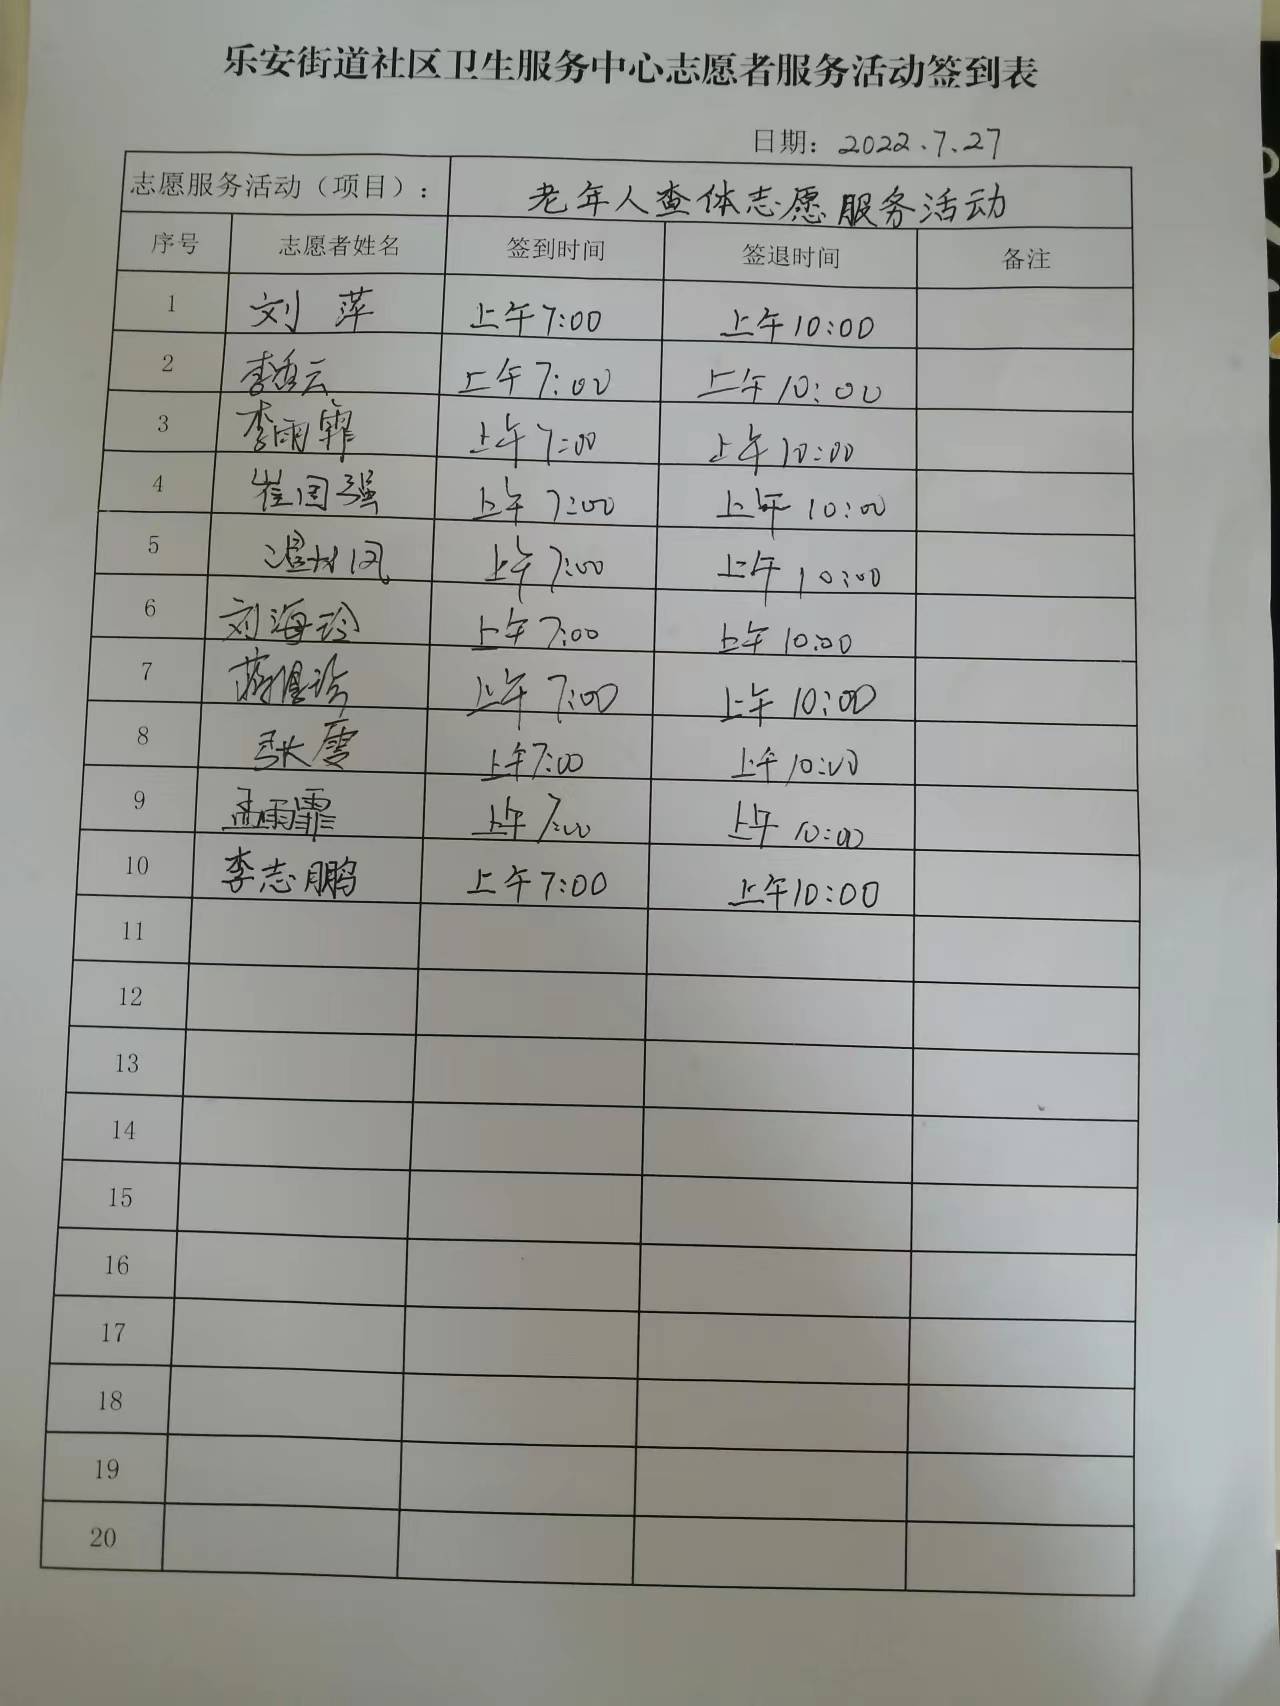 乐安街道社区卫生服务中心志愿者服务活动签到表
日期：2022.7.27
志愿服务活动（项目）： 老年人查体志愿服务活动
序号 志愿者姓名 签到时间 签退时间 备注
1 刘萍 上午7:00 上午10:00
2 李秀云 上午7:00 上午10:00
3 李雨霏 上午7:00 上午10:00
4 崔国强 上午7:00 上午10:00
5 温 凤 上午7:00 上午10:00
6 刘海玲 上午7:00 上午10:00
7 上午7:00 上午10:00
8 张雪 上午7:00 上午10:00
9 孟雨霏 上午7:00 上午10:00
10 李志鹏 上午7:00 上午10:00
11
12
13
14
15
16
17
18
19
20